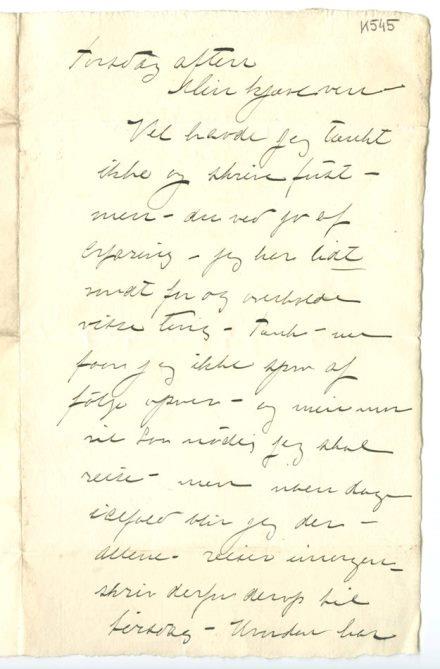 K545
Torsdag aften
Min kjære ven –
Vel havde jeg tænkt
ikke og skrive først –
men – du ved jo af
erfaring – jeg har lidt
ondt for og overholde
visse ting – Tænk – nu
faar jeg ikke af
følge – og min mor
vil saa nødig jeg skal
reise – men noen dage
ialfald blir jeg der –
allene – reiser imorgen –
skriv derfor derop til
tirsdag – har